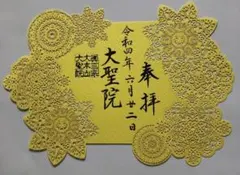 奉拝
令和四年六月廿二日
大聖院
大本山
大聖院